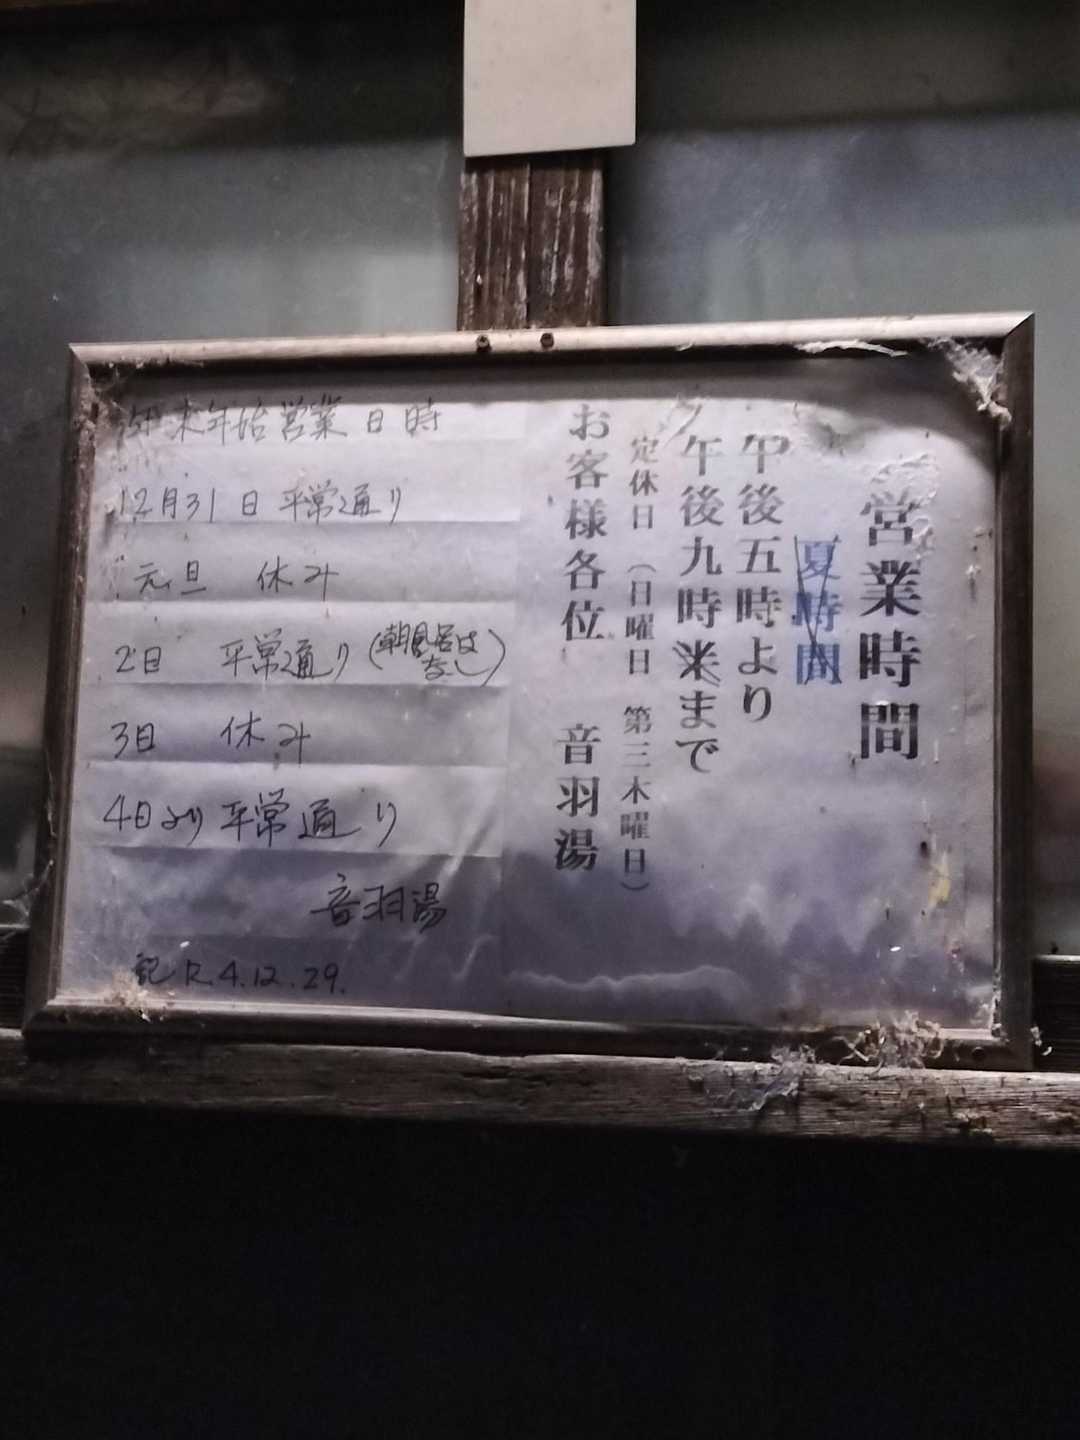 営業時間
夏時間
午後五時より
午後九時半まで
定休日（日曜日 第三木曜日）
お客様各位 音羽湯
年末年始営業日時
12月31日 平常通り
元旦 休み
2日 平常通り（朝風呂はなし）
3日 休み
4日より 平常通り
音羽湯
記 R.4.12.29.